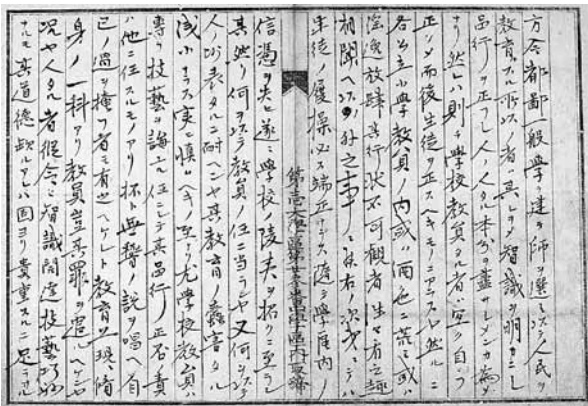 方今都鄙一般学ヲ建テ師ヲ選ミ以テ人民ヲ
教育スル所以ノ者ハ其レヲシテ智識ヲ明カニシ
品行ヲ正フシ人ノ人タル本分ヲ尽サシメンカ為メ
ナリ然レハ則チ学校教員タル者ハ宜ク自ラ
正シメ而後生徒ヲ正スヘキモノニアラスヤ然ルニ
各公立小学教員ノ内或ハ酒色ニ荒ミ或ハ
淫逸放肆其行状不可観者往々有之趣
相聞ヘ以ノ外之事ニ候右ノ次第ニテハ
生徒ノ履操必ス端正ナラス随テ学区内ノ
信憑ヲ失ヒ遂ニ学校ノ陵夷ヲ招クニ至ラン
其然リ何ヲ以テ教員ノ任ニ当ランヤ又何ヲ以テ
人ノ師表タルニ耐ヘンヤ其教育ノ蠹害タル
浅小ナラス実ニ慎ムヘキノ至リ尤学校教員ハ
専ラ技芸ヲ誨ユルニ任ニシテ其品行ノ正否ハ責
ハ他ニ任スルモノアリ抔ト無替ノ説ヲ唱ヘ自
己ノ過ヲ掩フ者モ有之ヘケレト教育ニ現ニ脩
身ノ一科アリ教員豈其罪ヲ遁ルヘケンヤ
況ヤ人タル者縦令ヒ智識闊達技芸巧妙
ナルモ其道徳欠ルアレハ固ヨリ貴重スルニ足ラサル